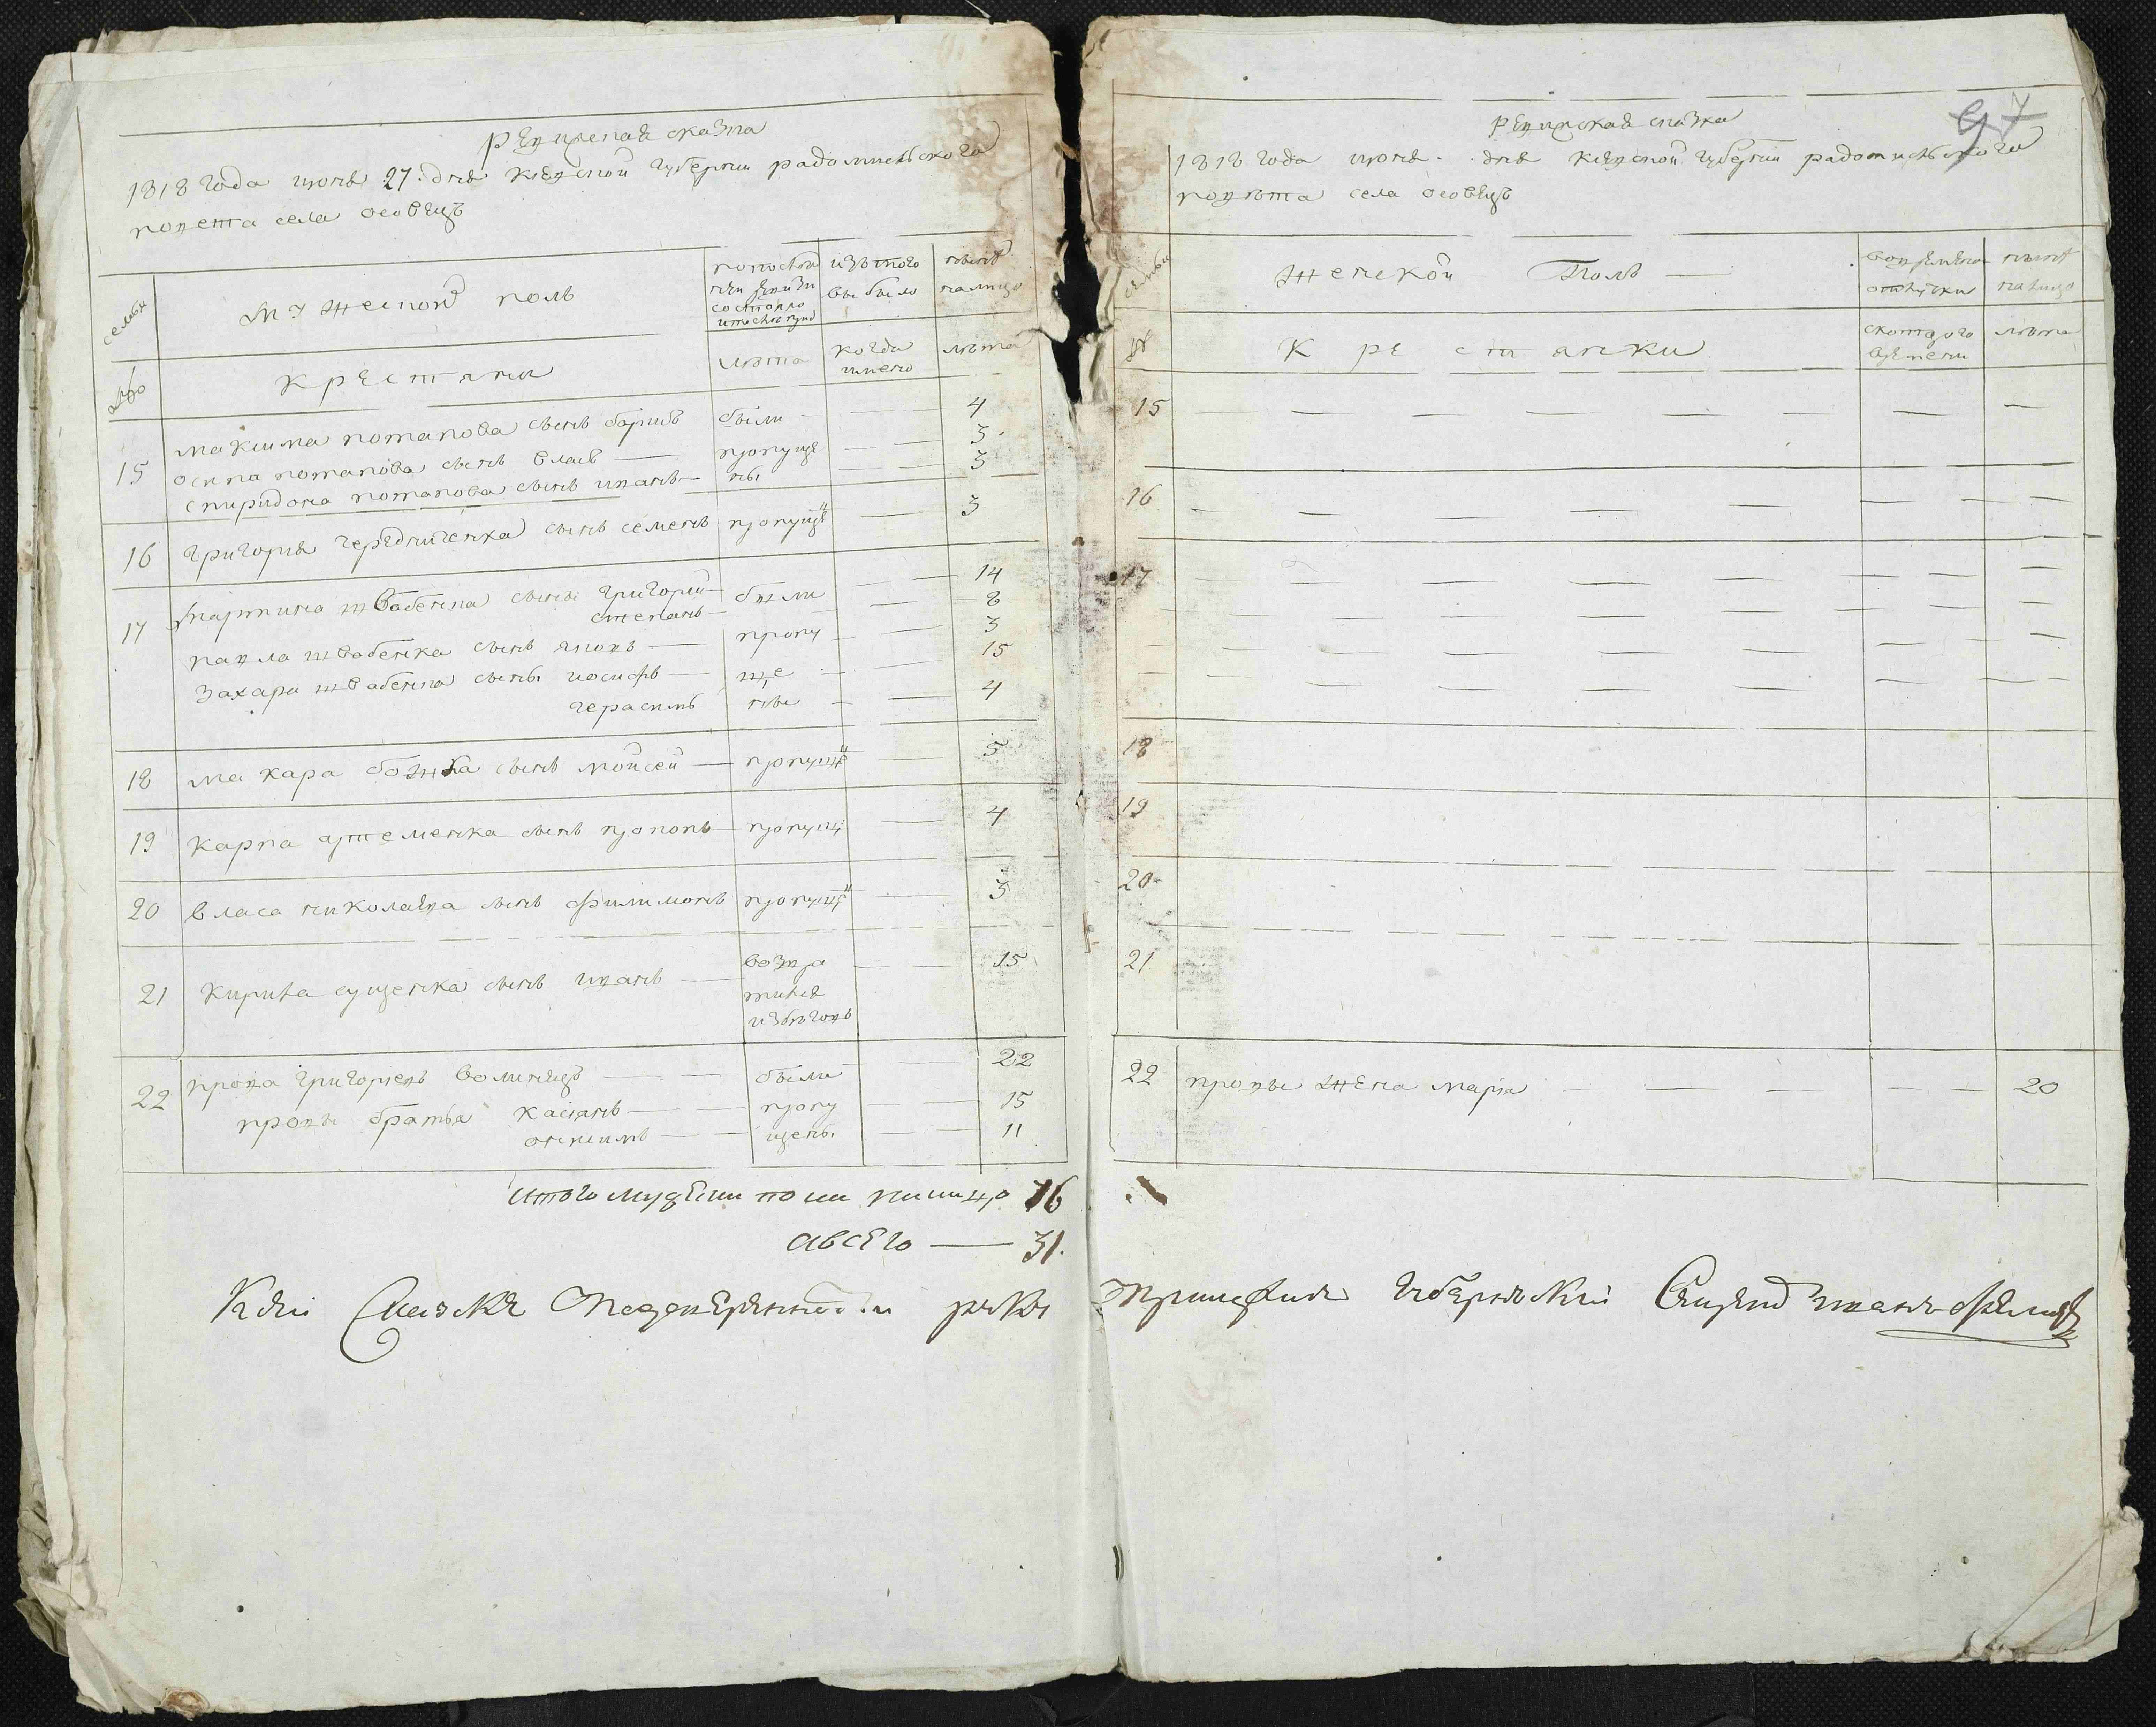 Ревизская сказка
1818 года июня 27. дня киевской губернии радомисльского
повета села осовець
семьи
мужеской полъ
по последней ревизии состояло и после прибыло
изъ того выбыло
ныне налицо
№
крестяни
лѣта
когда имено
лѣта
15
максима потапова сынъ борисъ
были
4
осипа потапова сынъ власъ
пропуще
3
спиридона потапова сынъ иванъ
ны
3
16
григория чередниченка сынъ семенъ
пропуще
3
17
мартина швабенка сыны григорий
были
14
степанъ
8
павла швабенка сынъ яковъ
пропу
3
захари швабенка сыны иосифъ
ще
15
герасимъ
ны
4
18
макара божка сынъ мойсей
пропуще
5
19
карпа артеменка сынъ прокопъ
пропуще
4
20
власа николаева сынъ филимонъ
пропуще
3
21
кирила сущенка сынъ иванъ
возвра
15
тился
изъ бѣговъ
22
прова григориевъ волинецъ
были
22
провы братья касянъ
пропу
15
онисимъ
щены
11
итого мужеска пола налицо 16
а всего — 31.
Ревизская сказка
97
1818 года июня . дня киевской губернии радомисльского
повѣта села осовець
семьи
женской Полъ
во временной отлучки
ныне налицо
№
крестянки
с которого времени
лѣта
15
16
17
18
19
20
21
22
провы жена мария
20
1
Къ сей Скаскѣ
руку
Губернский